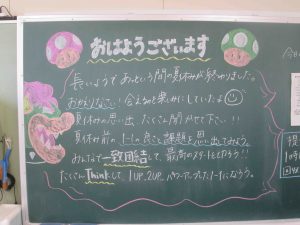 おはようございます
長いようであっという間の夏休みが終わりました。
おかえりなさい！会えるのを楽しみにしていたよ
夏休みの思い出 たくさん聞かせて下さい！！
夏休み前の1-1の良さと課題を思い出してみよう。
みんなで一致団結して、最高のスタートを切ろう！！
たくさんThinkして 1UP、2UP、パワーアップした1-1になろう。